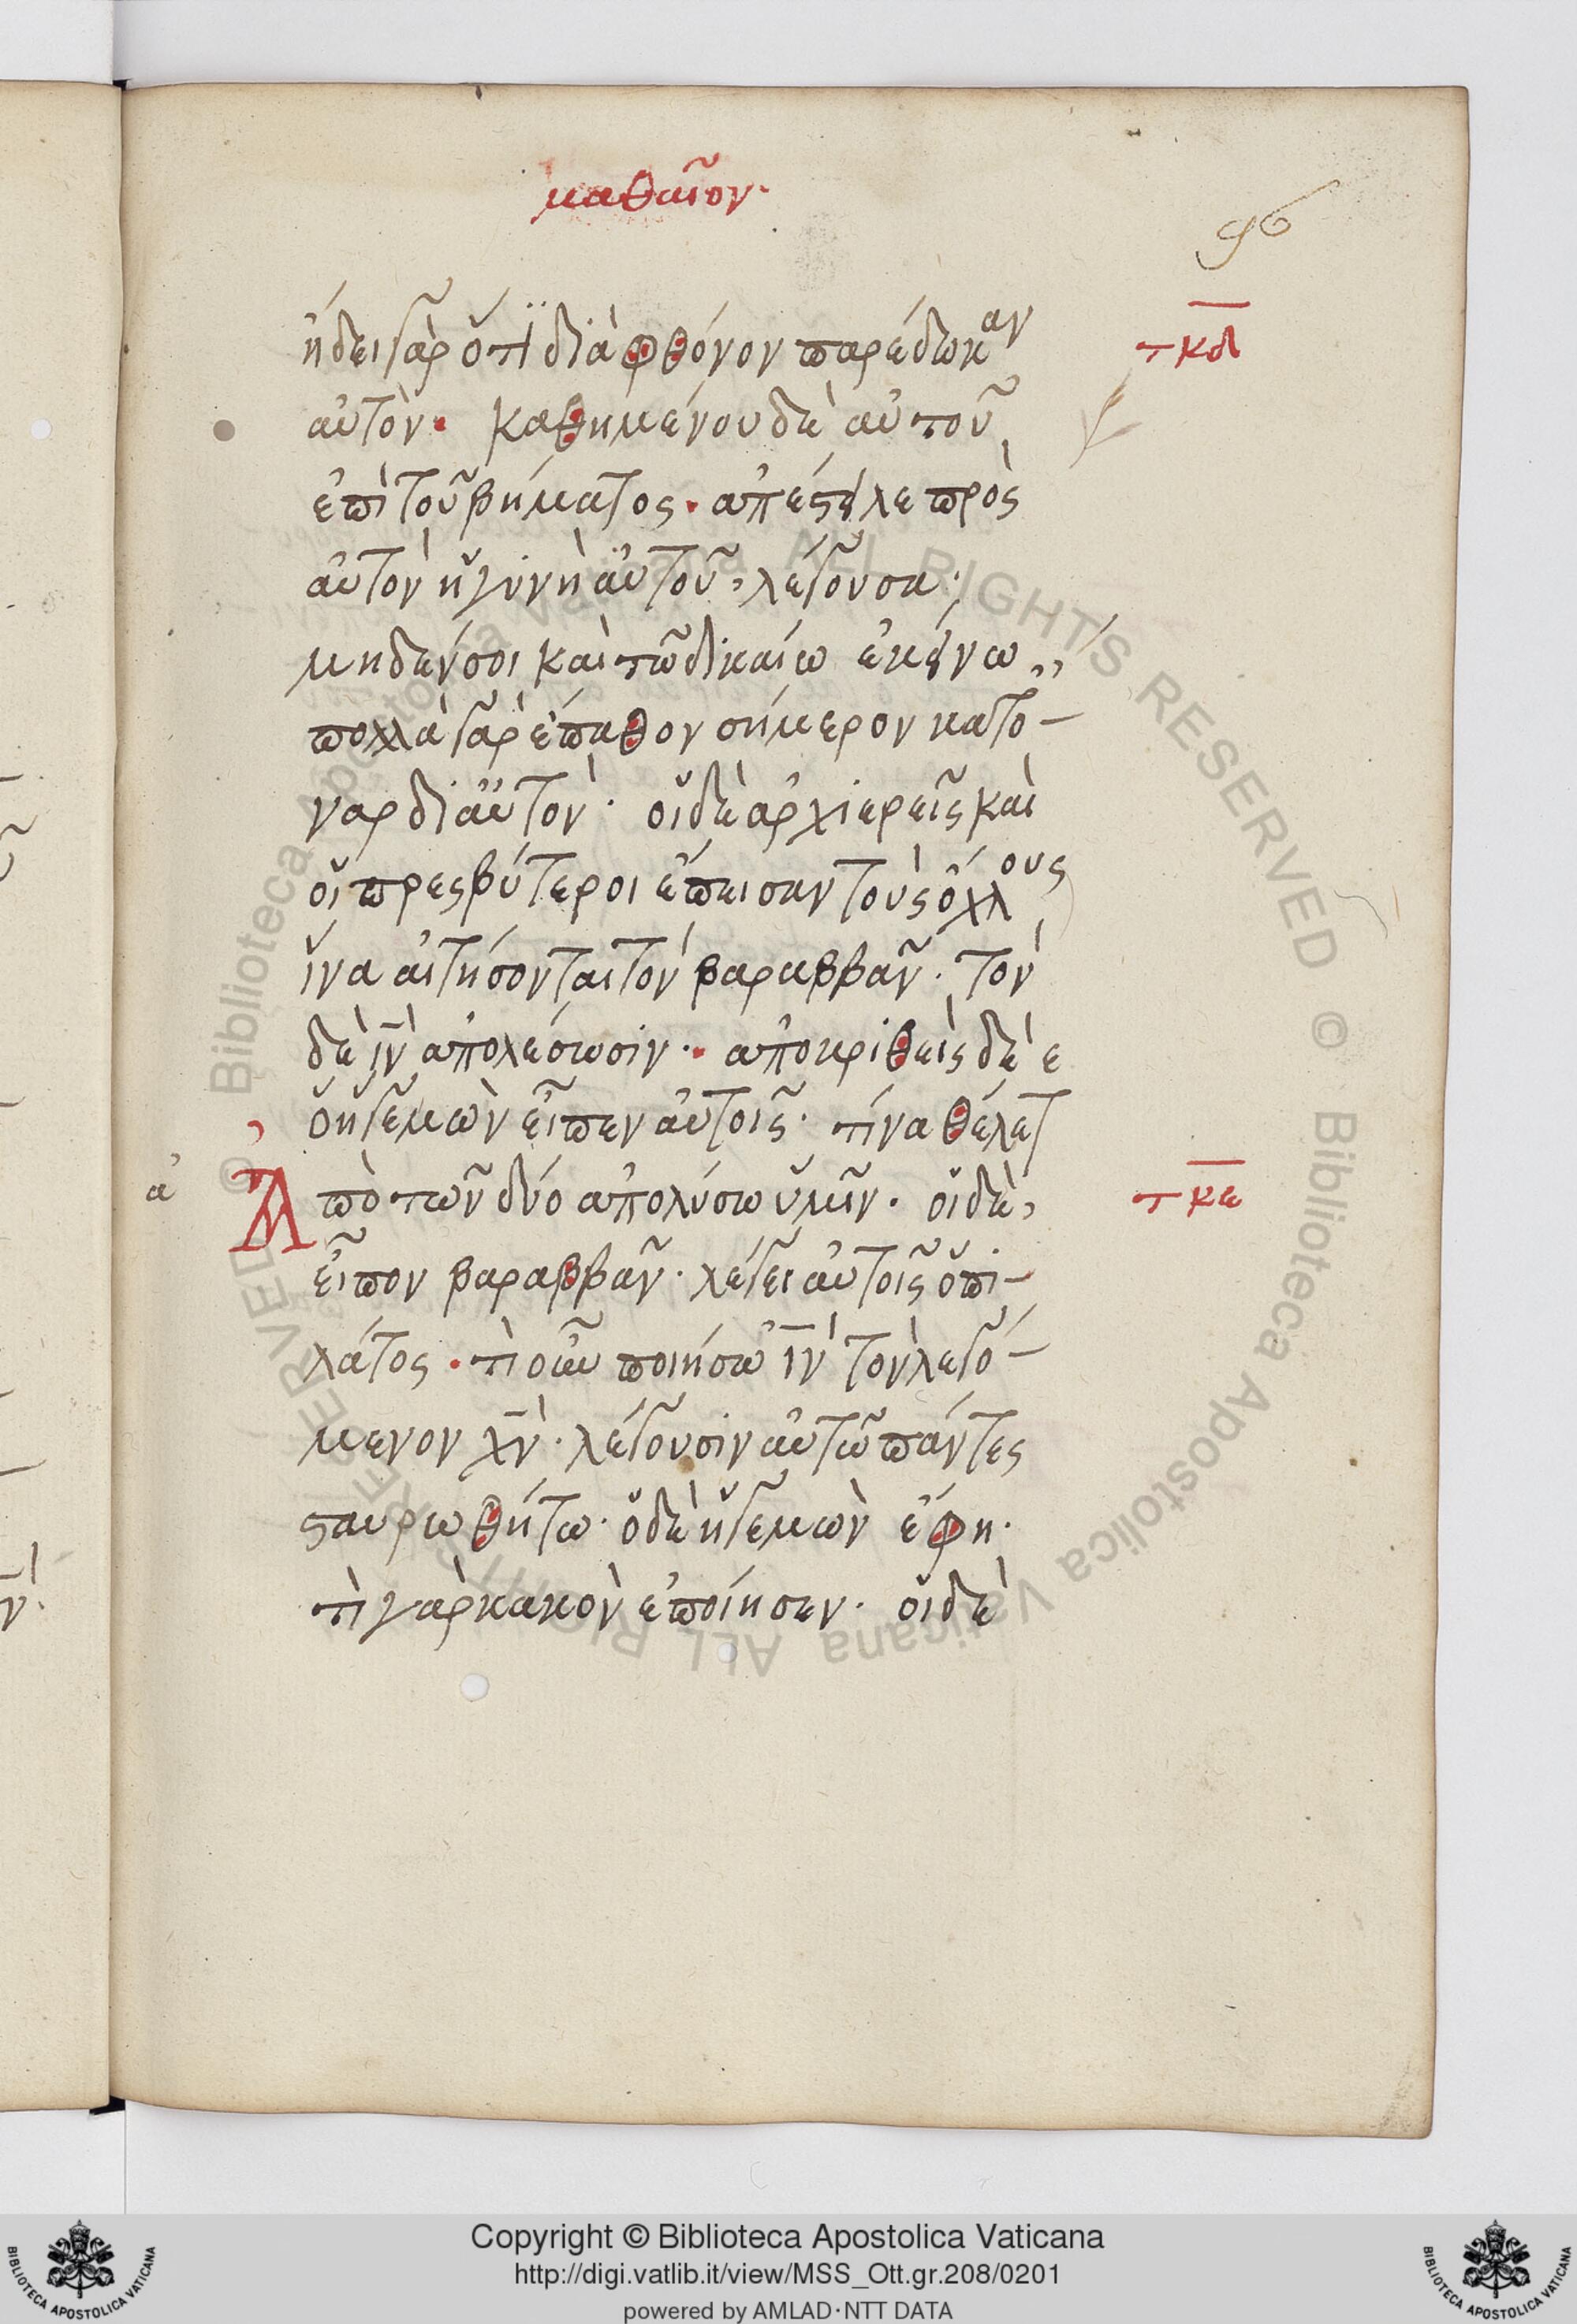 μαθαῖον·
96
ἤδει γὰρ ὅτϊ διὰ φθόνον παρέδωκαν
τκδ
αὐτόν· καθημένου δὲ αὐτοῦ
ἐπὶ τοῦ βήματος· ἀπέστειλε πρὸς
αὐτὸν ἡ γυνὴ αὐτοῦ, λέγουσα·
μηδέν σοι καὶ τῶ δικαίω ἐκείνω,,
πολλὰ γὰρ ἔπαθον σήμερον κατο-
ναρ δι αὐτόν· οἱ δὲ ἀρχιερεῖς καὶ
οἱ πρεσβύτεροι ἔπεισαν τοὺς ὄχλους
ἵνα αἰτήσονται τὸν βαραββᾶν· τὸν
δὲ ι̅ν̅ ἀπολέσωσιν·· ἀποκριθεὶς δὲ ε
ὁ ἡγεμὼν εἶπεν αὐτοῖς· τίνα θέλετ
α Ἀπὸ τῶν δύο ἀπολύσω ὑμῖν· οἱ δὲ,
τκε
εἶπον βαραββᾶν· λέγει αὐτοῖς ὁ πι-
λάτος· τὶ οὖν ποιήσω ι̅ν̅ τὸν λεγό-
μενον χ̅ν̅· λέγουσιν αὐτῶ πάντες
σταυρωθήτω· ὁ δὲ ἡγεμὼν ἔφη·
τὶ γὰρ κακὸν ἐποίησεν· οἱ δὲ
© Biblioteca Apostolica Vaticana ALL RIGHTS RESERVED © Biblioteca Apostolica Vaticana ALL RIGHTS RESERVED
Copyright © Biblioteca Apostolica Vaticana
http://digi.vatlib.it/view/MSS_Ott.gr.208/0201
powered by AMLAD·NTT DATA
BIBLIOTECA APOSTOLICA VATICANA
BIBLIOTECA APOSTOLICA VATICANA